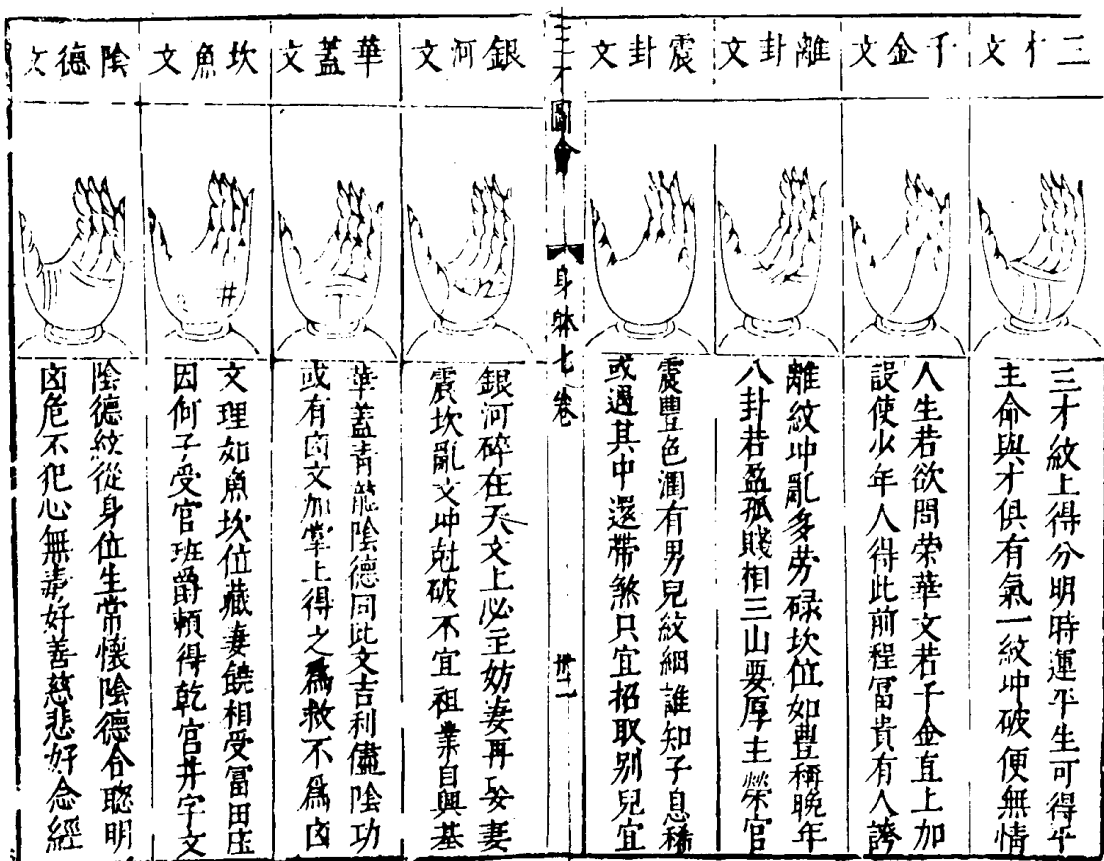 三才文
三才紋上得分明時運平生可得平
主命與才俱有氣一紋冲破便無情
千金文
人生若欲問荣華文若千金直上加
設使少年人得此前程冨貴有人誇
離卦文
離紋冲亂多劳碌坎位如豊稱晚年
八卦若盈孤賤相三山要厚主榮官
震卦文
震豊色潤有男兒紋細誰知子息稀
或遇其中還帶煞只宜招取别兒宜
三才圖會
身體七卷
卅二
銀河文
銀河碎在天文上必主妨妻再娶妻
震坎亂文冲尅破不宜祖業自興基
華蓋文
華蓋青龍陰德同此文吉利儘陰功
或有凶文加掌上得之爲救不爲凶
坎魚文
文理如魚坎位藏妻饒相受冨田庄
因何子受官班爵頼得乾宫井字文
陰德文
陰德紋從身位生常懷陰德合聰明
凶危不犯心無毒好善慈悲好念經